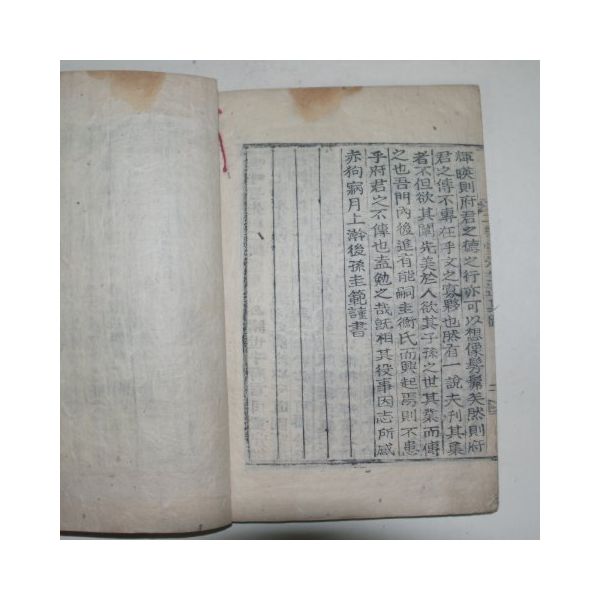 輝暎則府君之德之行亦可以想像髣髴矣然則府
君之傳不專在乎文之寡夥也然有一說夫刊其集
者不但欲其闡先美於人欲其子孫之世其業而傳
之也吾門內後進有能嗣圭衡氏而興起焉則不患
乎府君之不傳也盍勉之哉旣相其役事因志所感
赤狗窉月上澣後孫圭範謹書